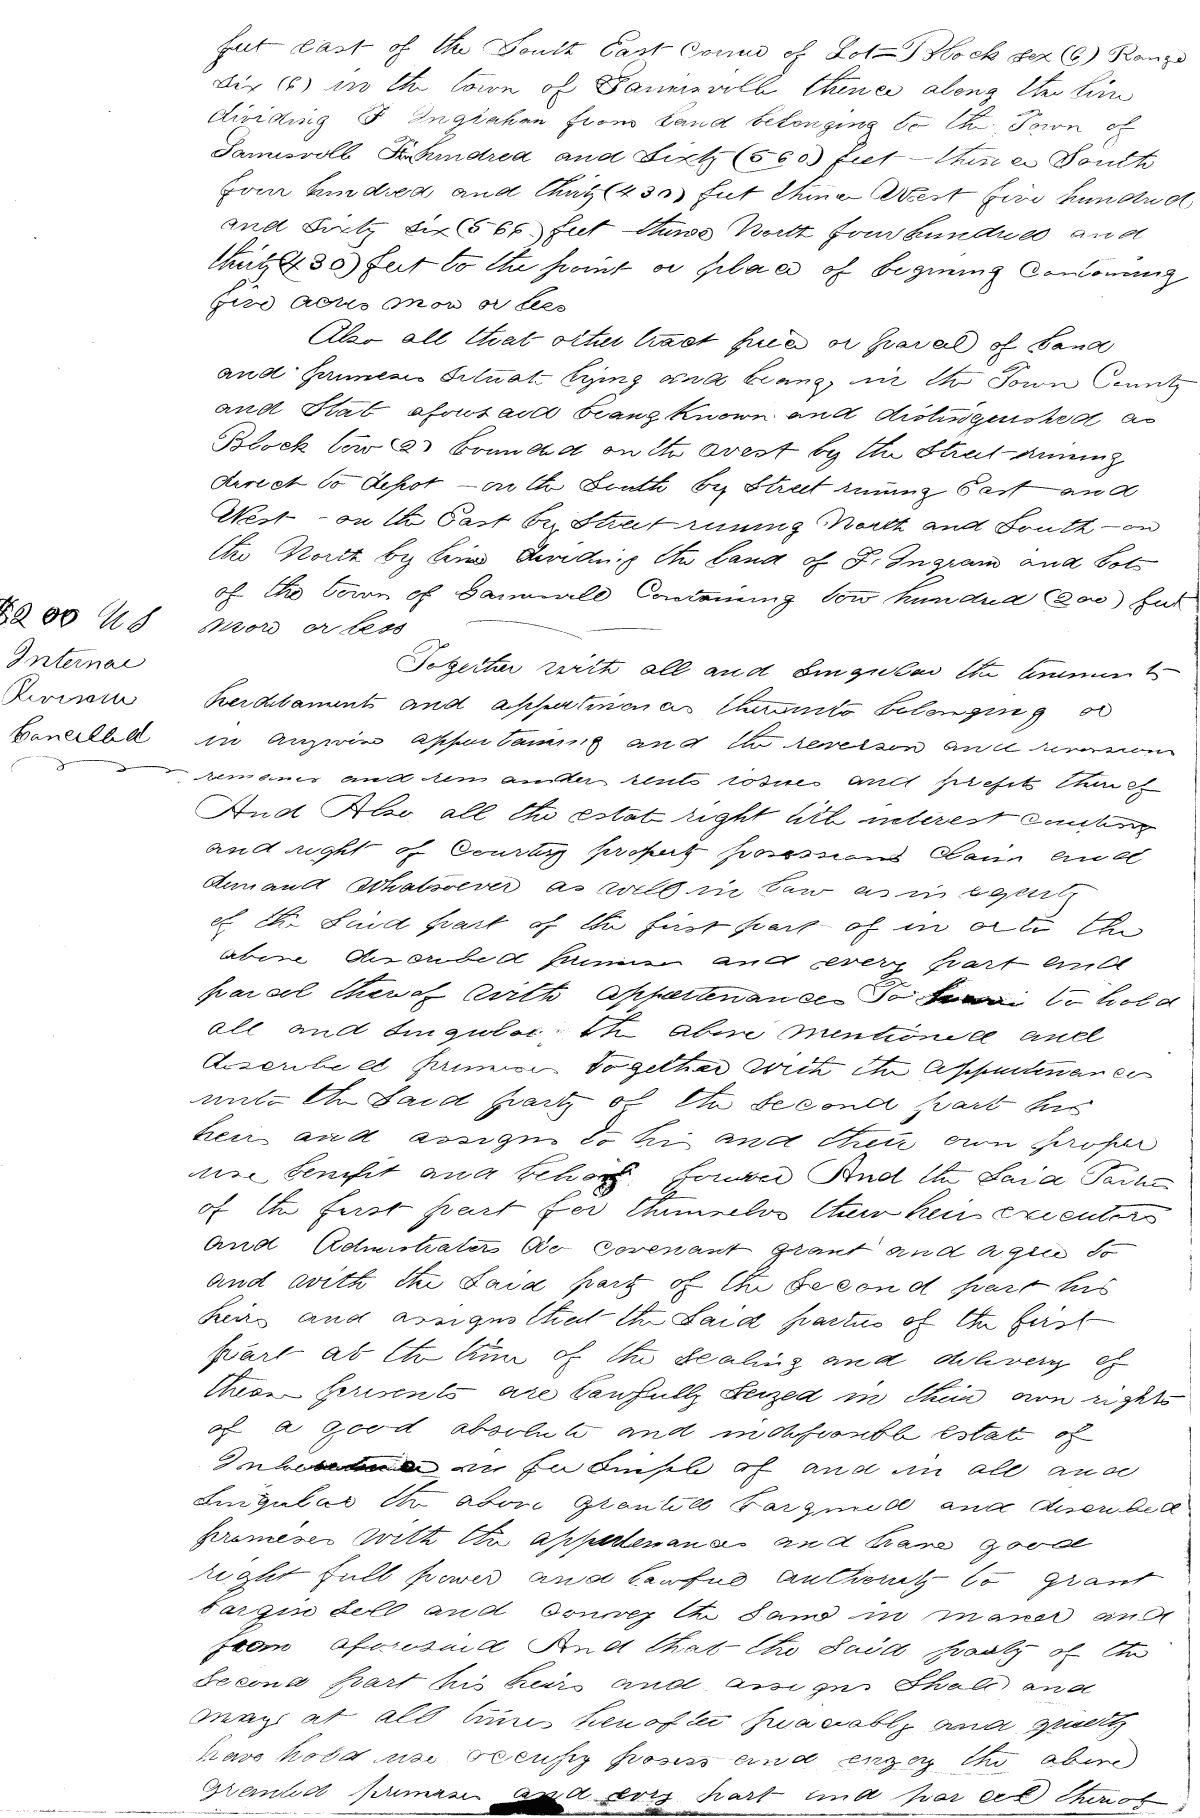 feet east of the South East corner of Lot= Block sex (6) Range
Six (6) in the town of Gainesville thence along the line
dividing F Ingrahan from Land belonging to the Town of
Gainesvill hundred and Sixty (560) feet - thence South
four hundred and thirty (430) feet thence West five hundred
and Sixty six (566) feet thence North four hundred and
thirty (430) feet to the point or place of begining Containing
five acres more or less
Also all that other tract piece or parcel of Land
and premeses Situate lying and beang in the Town County
and State aforesaid beang known and distingenshed as
Block tow (2) bounded on the West by the Street runing
direct to depot - on the South by Street runing East and
West - on the East by Street runing North and South - on
the North by line dividing the land of F. Ingram and Lots
of the town of Gainsville Containing tow hundred (200) feet
more or less
$2 00 U S
Internal
Revenue
Cancelled
Together with all and Singular the tenements
herditaments and appertinances thereunto belonging or
in anywise appertaining and the reverson and reversions
remaner and remainder rents issues and profits thereof
And Also all the estate right title interest
and right of Courtesy property possessions Claim and
demand Whatsoever as well in Law as in equity
of the Said part of the first part of in or to the
above described premises and every part and
parcel thereof with appertenances To to hold
all and Singular the above mentioned and
described premises together with the appurtenances
unto the Said party of the second part his
heirs and assigns to his and their own proper
use benefit and behoof forever And the Said Parties
of the first part for themselvs their heirs executors
and Admistraters do covenant grant and agree to
and with the Said party of the Second part his
heirs and assigns that the Said parties of the first
part at the time of the Sealing and delivery of
these presents are Lawfully Seized in their own rights
of a good absolute and indefeasible estate of
in fee Simple of and in all and
Singular the above granted bargined and described
premeses with the appertenances and have good
right full power and Lawful authority to grant
bargin Sell and Convey the Same in maner and
from aforesaid And that the Said party of the
Second part his heirs and assigns Shall and
may at all times hereafter peaceably and quietly
have hold use occupy posess and enjoy the above
granted premises and every part and parcel thereof